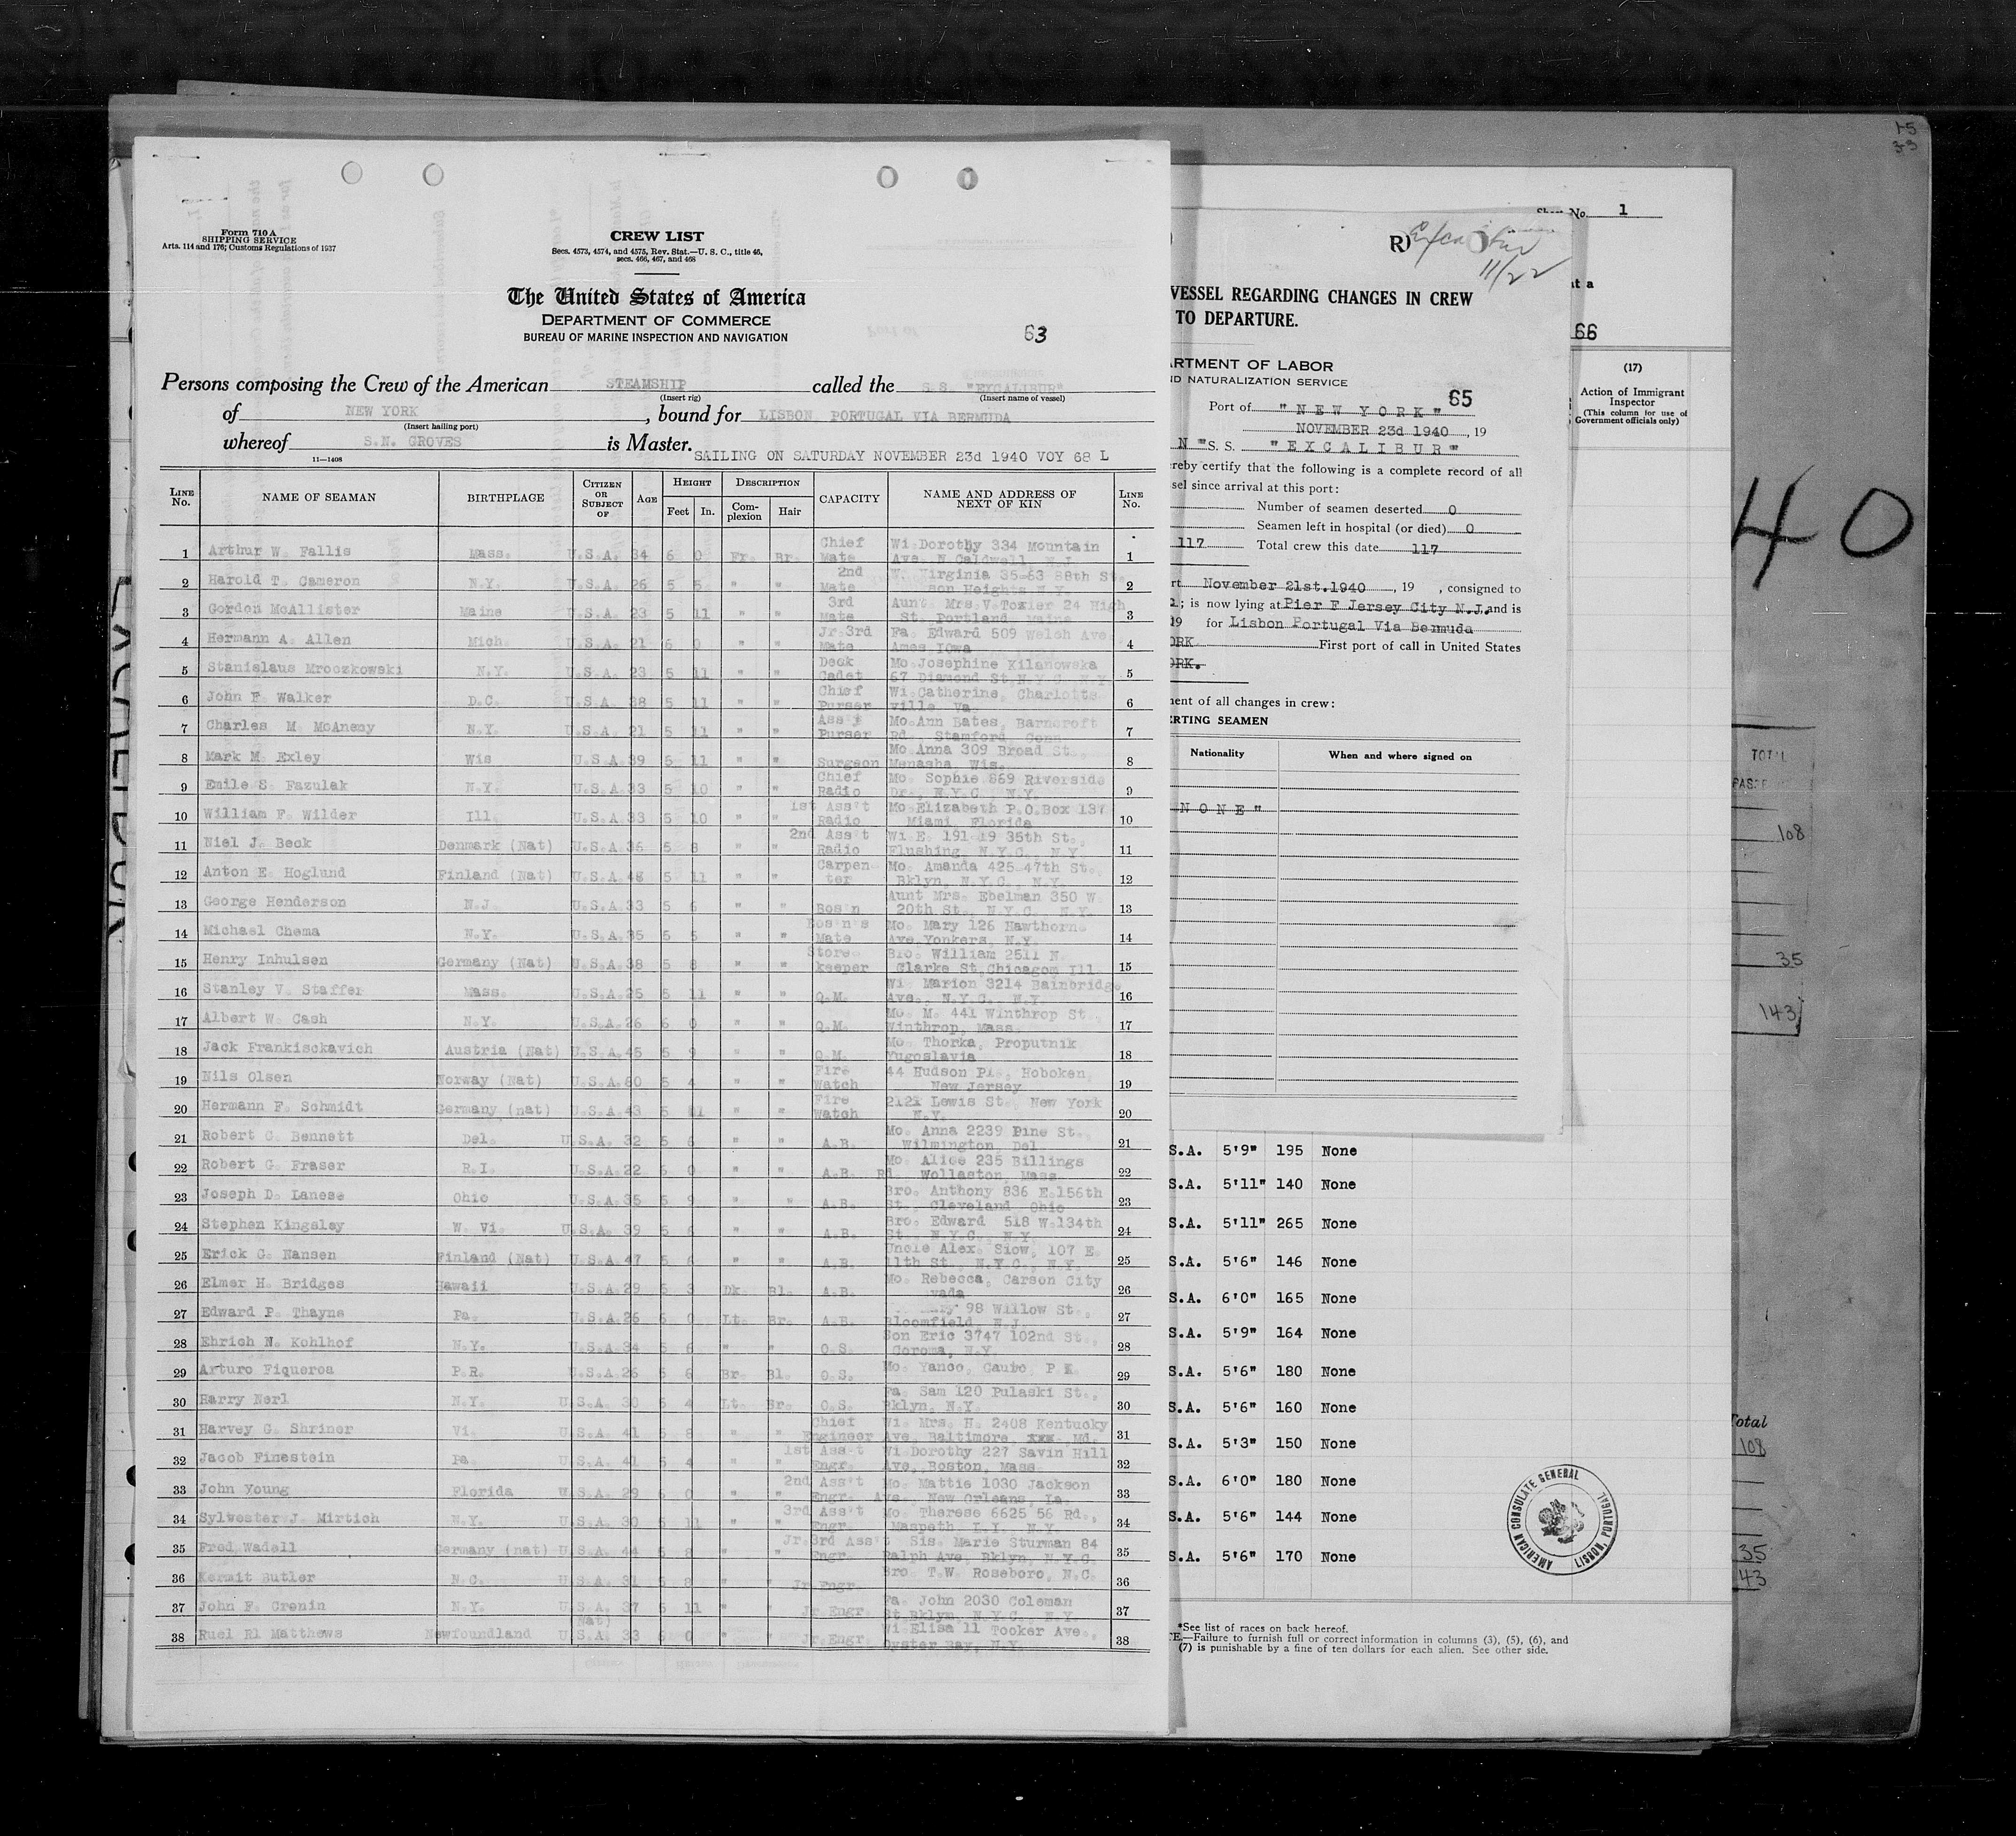 Form 710 A
SHIPPING SERVICE
Arts. 114 and 176; Customs Regulations of 1937
CREW LIST
Secs. 4573, 4574, and 4575, Rev. Stat.—U. S. C., title 46,
secs. 466, 467, and 468
The United States of America
DEPARTMENT OF COMMERCE
BUREAU OF MARINE INSPECTION AND NAVIGATION
63
Persons composing the Crew of the American STEAMSHIP called the S.S. "EXCALIBUR"
(Insert rig) (Insert name of vessel)
of NEW YORK, bound for LISBON PORTUGAL VIA BERMUDA
(Insert hailing port)
whereof S.N. GROVES is Master.
11—1408 SAILING ON SATURDAY NOVEMBER 23d 1940 VOY 68 L
LINE No. NAME OF SEAMAN BIRTHPLACE CITIZEN OR SUBJECT OF AGE HEIGHT Feet In. DESCRIPTION Complexion Hair CAPACITY NAME AND ADDRESS OF NEXT OF KIN LINE No.
1 Arthur W. Fallis Mass. U.S.A. 34 6 0 Fr. Br. Chief Mate Wi Dorothy 334 Mountain Ave. N Caldwell, N.J. 1
2 Harold T. Cameron N.Y. U.S.A. 26 5 5 " " 2nd Mate Virginia 35-63 88th St. son Heights N.Y. 2
3 Gordon McAllister Maine U.S.A. 23 5 11 " " 3rd Mate Aunt Mrs. V. Tozier 24 High St. Portland Maine 3
4 Hermann A. Allen Mich. U.S.A. 21 6 0 " " Jr 3rd Mate Fa. Edward 509 Welch Ave Ames Iowa 4
5 Stanislaus Mroczkowski N.Y. U.S.A. 23 5 11 " " Deck Cadet Mo. Josephine Kilanowska 67 Diamond St. N.Y.C. N.Y. 5
6 John F. Walker D.C. U.S.A. 38 5 11 " " Chief Purser Wi. Catherine, Charlotts ville Va. 6
7 Charles M. McAneny N.Y. U.S.A. 21 5 11 " " Ass't Purser Mo. Ann Bates, Barncroft Rd. Stamford Conn. 7
8 Mark M. Exley Wis U.S.A. 39 5 11 " " Surgeon Mo Anna 309 Broad St., Menasha Wis. 8
9 Emile S. Fazulak N.Y. U.S.A. 33 5 10 " " Chief Radio Mo. Sophie 869 Riverside Dr., N.Y.C. N.Y. 9
10 William F. Wilder Ill. U.S.A. 33 5 10 " " 1st Ass't Radio Mo Elizabeth P.O. Box 137 Miami, Florida 10
11 Niel J. Beck Denmark (Nat) U.S.A. 36 5 8 " " 2nd Ass't Radio Wi E. 191-19 35th St., Flushing, N.Y.C., N.Y. 11
12 Anton E. Hoglund Finland (Nat) U.S.A. 48 5 11 " " Carpen ter Mo. Amanda 425 47th St., Bklyn, N.Y.C., N.Y. 12
13 George Henderson N.J. U.S.A. 33 5 6 " " Bos'n Aunt Mrs. Ebelman 350 W. 20th St., N.Y.C. N.Y. 13
14 Michael Chema N.Y. U.S.A. 35 5 5 " " Bos'n's Mate Mo. Mary 126 Hawthorne Ave. Yonkers, N.Y. 14
15 Henry Inhulsen Germany (Nat) U.S.A. 38 5 8 " " Store keeper Bro. William 2511 N. Clarke St. Chicagom Ill. 15
16 Stanley V. Staffer Mass. U.S.A. 25 5 11 " " Q.M. Wi. Marion 3214 Bainbridge Ave., N.Y.C. N.Y. 16
17 Albert W. Cash N.Y. U.S.A. 26 6 0 " " Q.M. Mo. M. 441 Winthrop St., Winthrop, Mass. 17
18 Jack Frankisckavich Austria (Nat) U.S.A. 45 5 9 " " Q.M. Mo. Thorka, Proputnik Yugoslavia 18
19 Nils Olsen Norway (Nat) U.S.A. 60 5 4 " " Fire Watch 44 Hudson Pl., Hoboken, New Jersey 19
20 Hermann F. Schmidt Germany (nat) U.S.A. 43 5 11 " " Fire Watch Lewis St., New York N.Y. 20
21 Robert C. Bennett Del. U.S.A. 32 5 6 " " A.B. Mo. Anna 2239 Pine St., Wilmington Del. 21
22 Robert G. Fraser R.I. U.S.A. 22 6 0 " " A.B. Mo. Alice 235 Billings Rd. Wollaston, Mass. 22
23 Joseph D. Lanese Ohio U.S.A. 35 5 9 " " A.B. Bro. Anthony 836 E. 156th St., Cleveland Ohio 23
24 Stephen Kingsley W. Vi. U.S.A. 39 5 6 " " A.B. Bro. Edward 518 W. 134th St., N.Y.C., N.Y. 24
25 Erick G. Nansen Finland (Nat) U.S.A. 47 5 6 " " A.B. Uncle Alex. Siow, 107 E. 11th St., N.Y.C., N.Y. 25
26 Elmer H. Bridges Hawaii U.S.A. 29 5 3 Dk. Bl. A.B. Mo. Rebecca, Carson City vada 26
27 Edward P. Thayne Pa. U.S.A. 26 6 0 Lt. Br. A.B. 98 Willow St., Bloomfield, N.J. 27
28 Ehrich N. Kohlhof N.Y. U.S.A. 34 5 6 " " O.S. Son Eric 3747 102nd St., Corona, N.Y. 28
29 Arturo Fiqueroa P.R. U.S.A. 26 5 6 Br. Bl. O.S. Mo. Yanco, P.R. 29
30 Harry Nerl N.Y. U.S.A. 30 5 4 Lt. Br. O.S. Fa. Sam 120 Pulaski St., Bklyn, N.Y. 30
31 Harvey G. Shriner Vi. U.S.A. 41 5 8 " " Chief Engineer Wi. Mrs. H. 2408 Kentucky Ave. Baltimore xxx Md. 31
32 Jacob Finestein Pa. U.S.A. 41 5 4 " " 1st Ass't Engr. Wi Dorothy 227 Savin Hill Ave. Boston, Mass. 32
33 John Young Florida U.S.A. 29 6 0 " " 2nd Ass't Engr. Mo. Mattie 1030 Jackson Ave. New Orleans, La. 33
34 Sylvester J. Mirtich N.Y. U.S.A. 30 5 11 " " 3rd Ass't Engr. Mo. Therese 6625 56 Rd., Maspeth L.I. N.Y. 34
35 Fred Wadell Germany (nat) U.S.A. 44 5 8 " " Jr 3rd Ass't Engr. Sis. Marie Sturman 84 Ralph Ave, Bklyn, N.Y.C. 35
36 Kermit Butler N.C. U.S.A. 31 5 8 " " Jr Engr. Bro T.W. Roseboro, N.C. 36
37 John F. Cronin N.Y. U.S.A. 37 5 11 " " Jr Engr. Fa. John 2030 Coleman St Bklyn, N.Y.C., N.Y. 37
38 Ruel Rl Matthews Newfoundland (Nat) U.S.A. 33 6 0 " " Jr Engr. Wi Elisa 11 Tooker Ave., Oyster Bay, N.Y. 38
R)
11/22
VESSEL REGARDING CHANGES IN CREW
TO DEPARTURE.
ARTMENT OF LABOR
ND NATURALIZATION SERVICE
65
Port of "NEW YORK"
NOVEMBER 23d 1940, 19
N "S. S. "EXCALIBUR"
reby certify that the following is a complete record of all
sel since arrival at this port:
Number of seamen deserted 0
Seamen left in hospital (or died) 0
117 Total crew this date 117
rt November 21st.1940, 19 , consigned to
; is now lying at Pier F Jersey City N.J. and is
19 for Lisbon Portugal Via Bermuda
ORK First port of call in United States
ORK.
ent of all changes in crew:
ERTING SEAMEN
Nationality When and where signed on
NONE"
No. 1
at a
66
(17)
Action of Immigrant Inspector
(This column for use of Government officials only)
S.A. 5'9" 195 None
S.A. 5'11" 140 None
S.A. 5'11" 265 None
S.A. 5'6" 146 None
S.A. 6'0" 165 None
S.A. 5'9" 164 None
S.A. 5'6" 180 None
S.A. 5'6" 160 None
S.A. 5'3" 150 None
S.A. 6'0" 180 None
S.A. 5'6" 144 None
S.A. 5'6" 170 None
AMERICAN CONSULATE GENERAL
LISBON, PORTUGAL
*See list of races on back hereof.
TE.—Failure to furnish full or correct information in columns (3), (5), (6), and
(7) is punishable by a fine of ten dollars for each alien. See other side.
40
108
35
143
Total
108
35
43